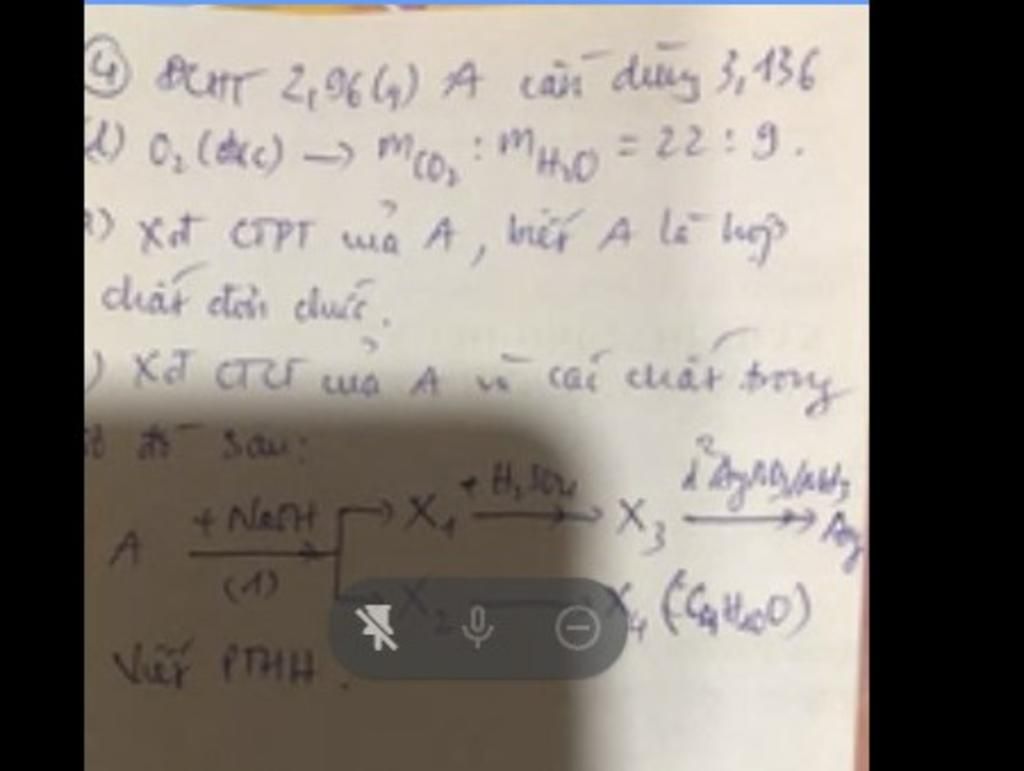 ④ ĐCHT 2,96(g) A cần dùng 3,136
(l) O₂ (đkc) → mCO₂ : mH₂O = 22 : 9.
a) Xđ CTPT của A, biết A là hợp
chất đơn chức.
) Xđ CTCT của A và các chất trong
đồ sau:
A + NaOH (1) → X₁ + H₂SO₄ → X₃ d² AgNO₃/NH₃ → Ag
→ X₂ → X₄ (C₄H₁₀O)
Viết PTHH.